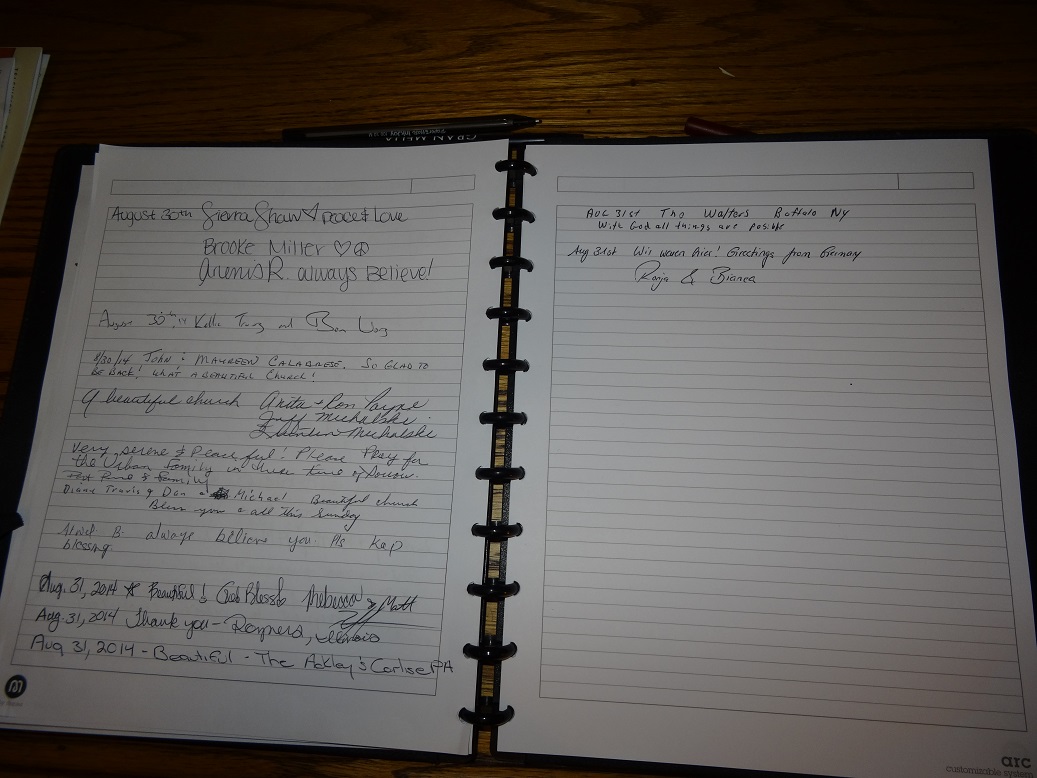 GRAN MELIA
August 30th Sierra Shaw & peace & Love
Brooke Miller ♡☮
Arenis R. always Believe!
August 30th, 14 Kellie and Ben
8/30/14 John & Maureen Calabrese. So glad to
be back! What a beautiful church!
A beautiful church Anita + Ron Payne
Jeff Michalski
Quentin Michalski
Very serene & Peaceful! Please Pray for
the Urban family in their time of sorrow.
& family
Diane Travis & Dan & Michael Beautiful church
Bless you & all this Sunday
B. always believe you. Pls kep
blessing.
Aug. 31, 2014 ☆ Beautiful! God Bless! Rebecca & Matt
Aug. 31, 2014 Thank you - Rayners, Illinois
Aug 31, 2014 - Beautiful - The Ackley's Carlise PA
m
Aug 31st The Walters Buffalo Ny
With God all things are posible
Aug 31st Wir waren hier! Greetings from Germany
Ronja & Bianca
arc
customizable system